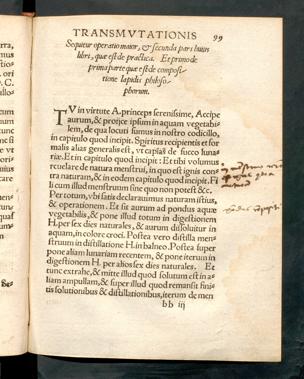 TRANSMVTATIONIS 99
Sequitur operatio maior, & secunda pars huius
libri, quæ est de practica. Et primo de
prima parte quæ est de compositi-
tione lapidis philoso-
phorum.
TV in virtute A. princeps serenissime, Accipe
aurum, & proiice ipsum in aquam vegetabi-
lem, de qua locuti sumus in nostro codicillo,
in capitulo quod incipit. Spiritus recipientis et for
malis alias generalis est, vt capias de succo lunar
riæ. Et in capitulo quod incipit: Et tibi volumus
reuelare de natura menstrui, in quo est ignis con-
tra naturam, & in eodem capitulo quod incipit: Fi
li cum illud menstruum sine quo non potest &c.
Per totum, vbi satis declarauimus naturam istius,
& operationem. Et sit aurum ad pondus aquæ
vegetabilis, & pone illud totum in digestionem
H. per sex dies naturales, & aurum dissoluitur in
aquam, in colore croci. Postea vero distilla men-
struum in distillatione H. in balneo. Postea super
pone aliam lunariam recentem, & pone iterum in
digestionem H. per alios sex dies naturales. Et
tunc extrahe, & mitte illud quod solutum est in a-
liam ampullam, & super illud quod remansit fini-
tis solutionibus & distillationibus, iterum de men
bb iij